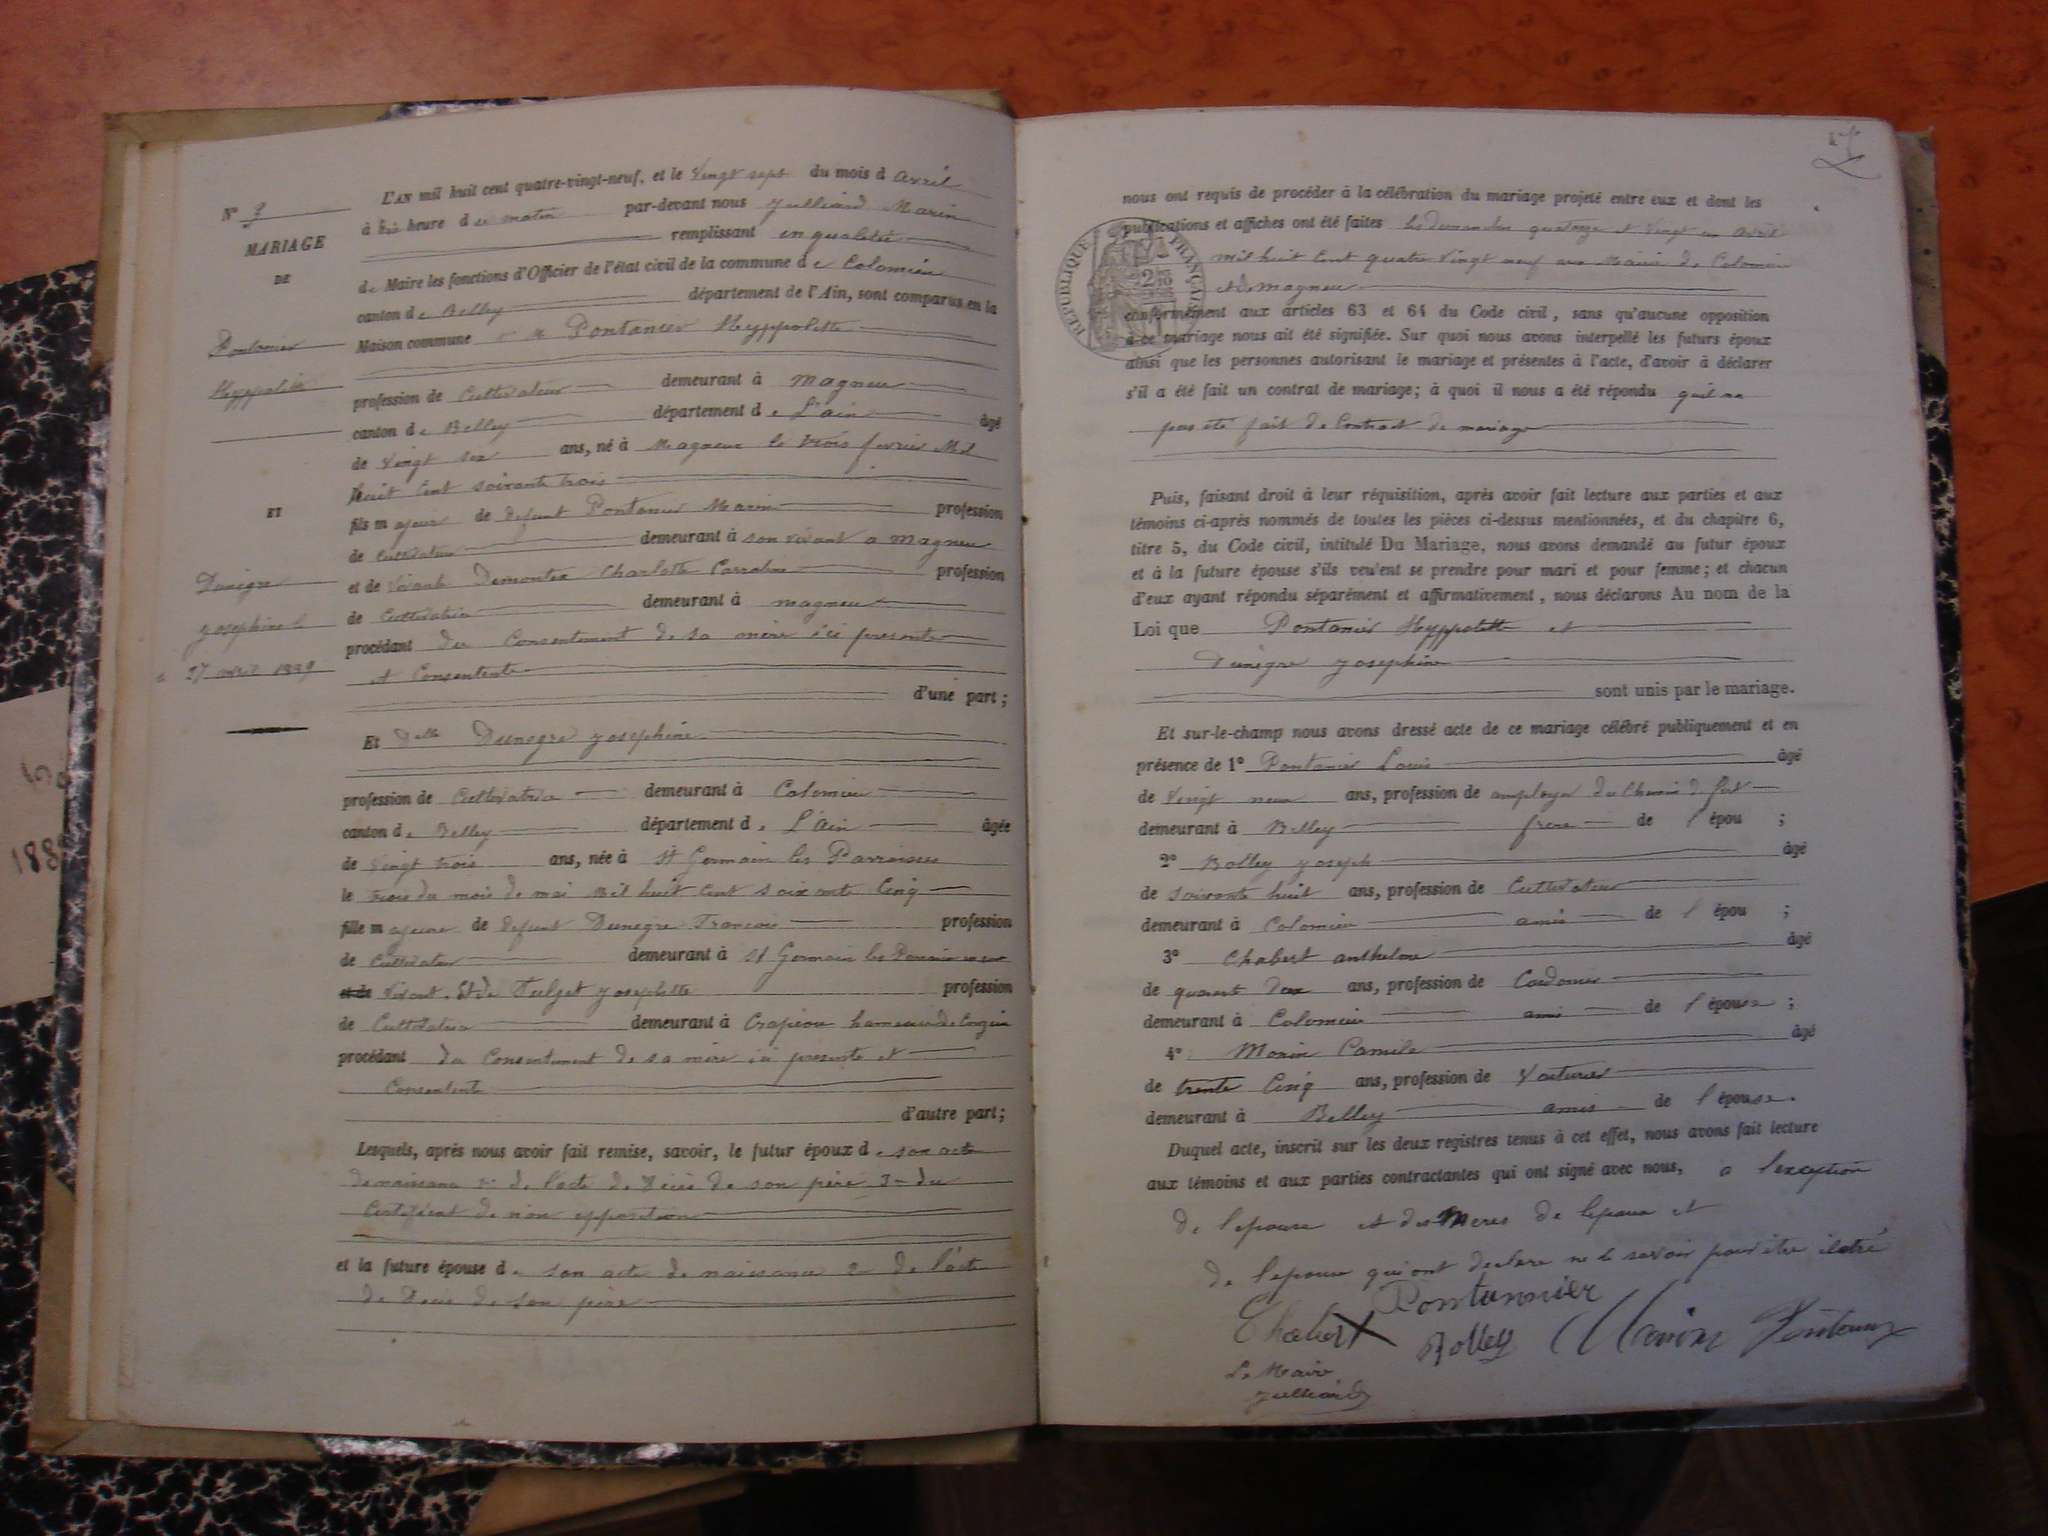 N° 3
MARIAGE
DE
Pontanier
Hyppolitte
ET
Dunegre
Josephine
27 avril 1889
L'AN mil huit cent quatre-vingt-neuf, et le Vingt sept du mois d avril
à heure d u matin par-devant nous Julliand Marin
remplissant en qualité
de Maire les fonctions d'Officier de l'état civil de la commune de Colomieu
canton de Belley département de l'Ain, sont comparus en la
Maison commune Pontanier Hyppolitte
profession de Cultivateur demeurant à Magneu
canton de Belley département de L'ain âgé
de vingt six ans, né à Magneu le trois fevrier Mil
huit Cent soixante trois
fils majeur de defunt Pontanier Marin profession
de Cultivateur demeurant à son vivant a Magneu
et de vivante Charlotte profession
de Cultivatrice demeurant à magneu
procédant du Consentement de sa mère ici presente
et Consentente
d'une part ;
Et Delle Dunegre Josephine
profession de Cultivatrice demeurant à Colomieu
canton de Belley département de L'Ain âgée
de Vingt trois ans, née à St Germain les Parroisses
le trois du mois de mai Mil huit Cent soixante Cinq
fille majeure de defunt Dunegre Francois profession
de Cultivateur demeurant à St Germain les
et de vivant. Et de Josephte profession
de Cultivatrice demeurant à Crapéou hameau de
procédant du Consentement de sa mère ici presente et
Consentente
d'autre part ;
Lesquels, après nous avoir fait remise, savoir, le futur époux de son acte
de naissance 2° de l'acte de Décès de son père 3° du
Certificat de non opposition
et la future épouse de son acte de naissance 2° de l'acte
de Décès de son père
nous ont requis de procéder à la célébration du mariage projeté entre eux et dont les
publications et affiches ont été faites les dimanches quatorze et vingt un avril
mil huit Cent quatre Vingt neuf aux Mairie de Colomieu
et de Magneu
RÉPUBLIQUE FRANÇAISE
conformément aux articles 63 et 64 du Code civil, sans qu'aucune opposition
à ce mariage nous ait été signifiée. Sur quoi nous avons interpellé les futurs époux
ainsi que les personnes autorisant le mariage et présentes à l'acte, d'avoir à déclarer
s'il a été fait un contrat de mariage ; à quoi il nous a été répondu quil na
pas eté fait de Contrat de mariage
Puis, faisant droit à leur réquisition, après avoir fait lecture aux parties et aux
témoins ci-après nommés de toutes les pièces ci-dessus mentionnées, et du chapitre 6,
titre 5, du Code civil, intitulé Du Mariage, nous avons demandé au futur époux
et à la future épouse s'ils veulent se prendre pour mari et pour femme ; et chacun
d'eux ayant répondu séparément et affirmativement, nous déclarons Au nom de la
Loi que Pontanier Hyppolitte et
Dunegre Josephine
sont unis par le mariage.
Et sur-le-champ nous avons dressé acte de ce mariage célébré publiquement et en
présence de 1° Pontanier Louis âgé
de Vingt neuf ans, profession de employer du Chemin de fer
demeurant à Belley frere de l'épou ;
2° Bolley Joseph âgé
de soixante huit ans, profession de Cultivateur
demeurant à Colomieu amis de l'épou ;
3° Chabert anthelme âgé
de quarant deux ans, profession de Cordonier
demeurant à Colomieu amis de l'épouse ;
4° Monin Camile âgé
de trente Cinq ans, profession de Voiturier
demeurant à Belley amis de l'épouse.
Duquel acte, inscrit sur les deux registres tenus à cet effet, nous avons fait lecture
aux témoins et aux parties contractantes qui ont signé avec nous, a l'exception
de l'epouse et des Meres de lepoux et
de l'epouse qui ont declare ne le savoir pour être iletré
Pontannier
Chabert
Bolley Monin
Le Maire
Julliand